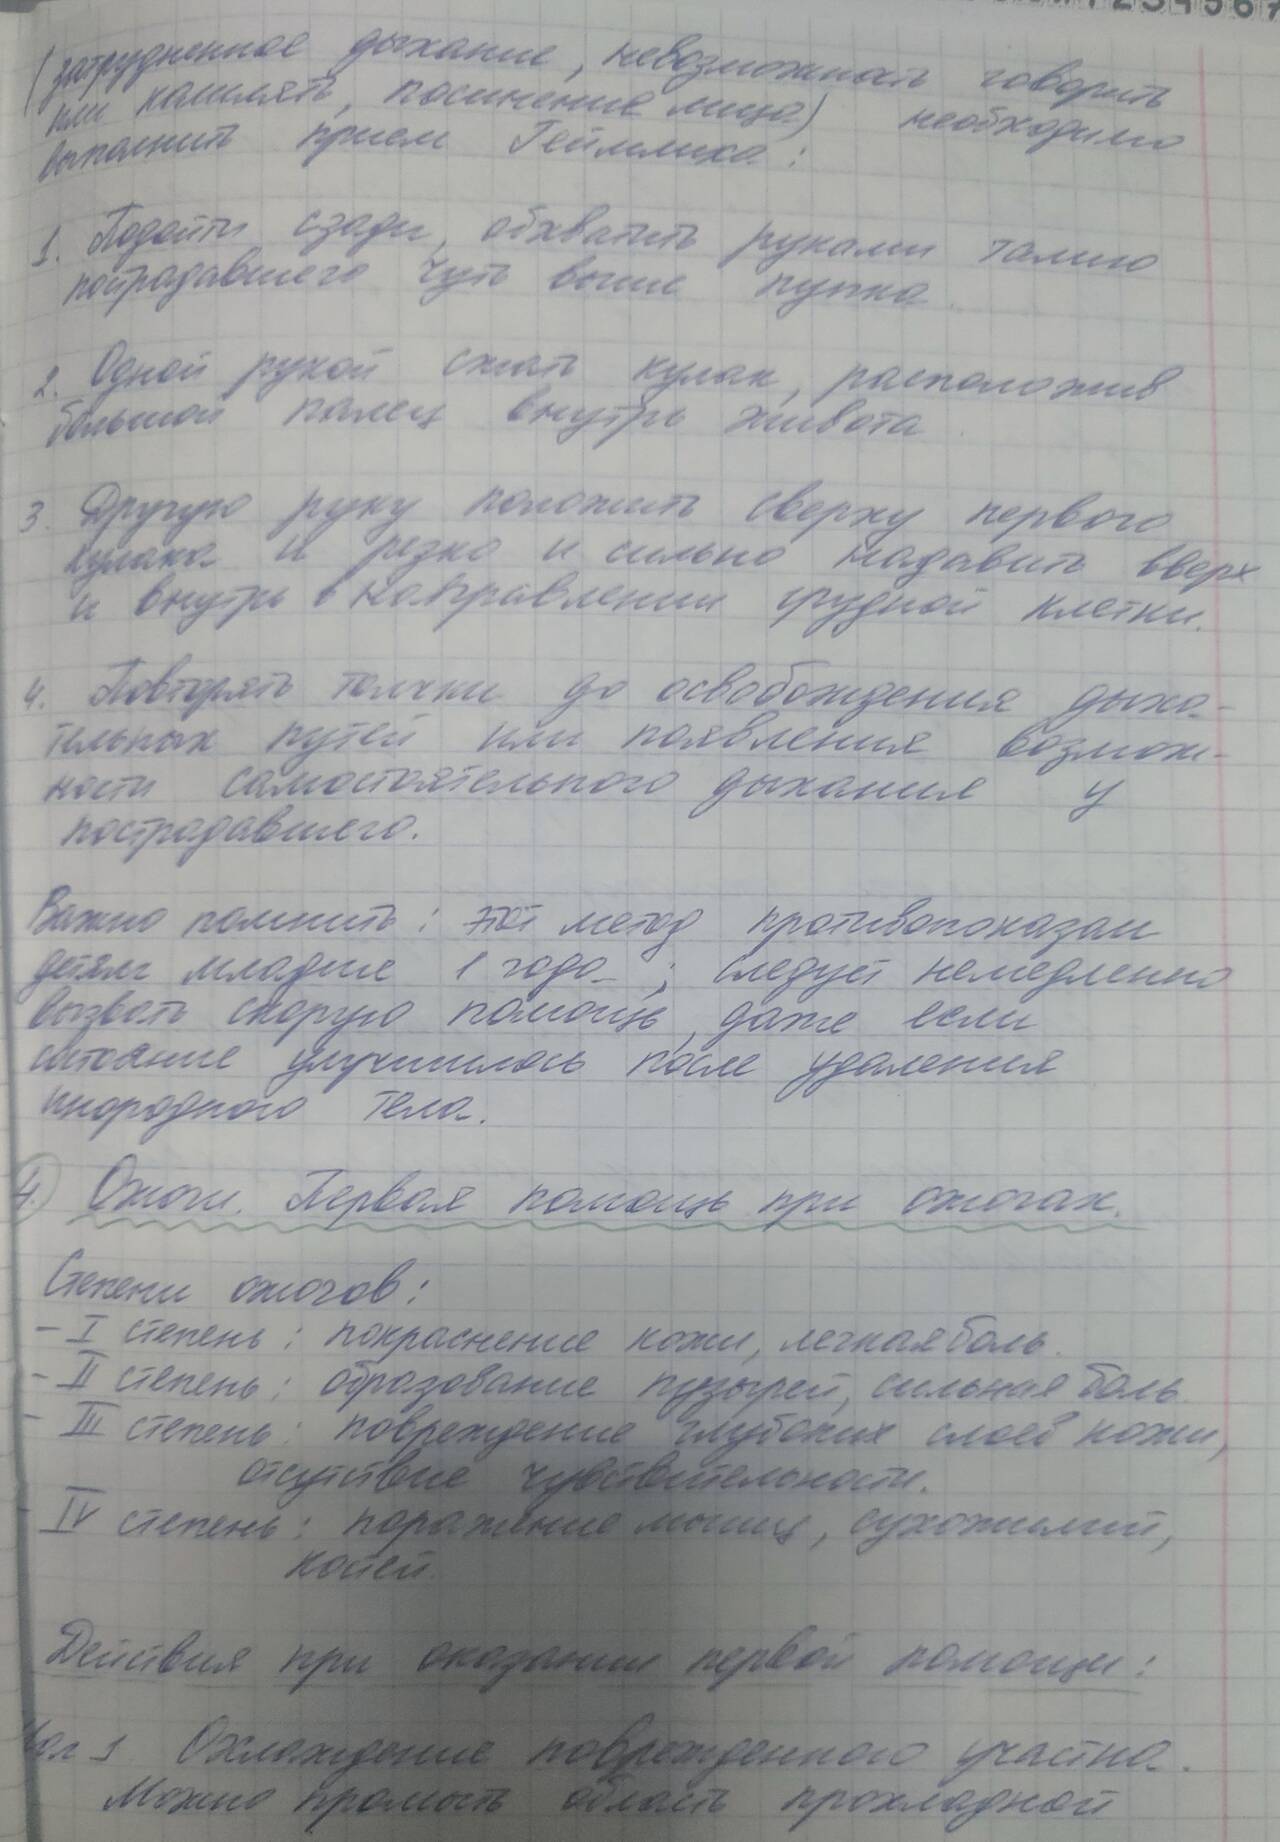 (затрудненное дыхание, невозможность говорить
или кашлять, посинение лица) необходимо
выполнить прием Геймлиха:
1. Подойти сзади, обхватить руками талию
пострадавшего чуть выше пупка.
2. Одной рукой сжать кулак, расположив
большой палец внутрь живота.
3. Другую руку положить сверху первого
кулака и резко и сильно надавить вверх
и внутрь в направлении грудной клетки.
4. Повторять толчки до освобождения дыха-
тельных путей или появления возмож-
ности самостоятельного дыхания у
пострадавшего.
Важно помнить: этот метод противопоказан
детям младше 1 года; следует немедленно
вызвать скорую помощь, даже если
состояние улучшилось после удаления
инородного тела.
4. Ожоги. Первая помощь при ожогах.
Степени ожогов:
- I степень: покраснение кожи, легкая боль.
- II степень: образование пузырей, сильная боль.
- III степень: повреждение глубоких слоев кожи,
отсутствие чувствительности.
- IV степень: поражение мышц, сухожилий,
костей.
Действия при оказании первой помощи:
Шаг 1 Охлаждение поврежденного участка.
Можно промыть область прохладной